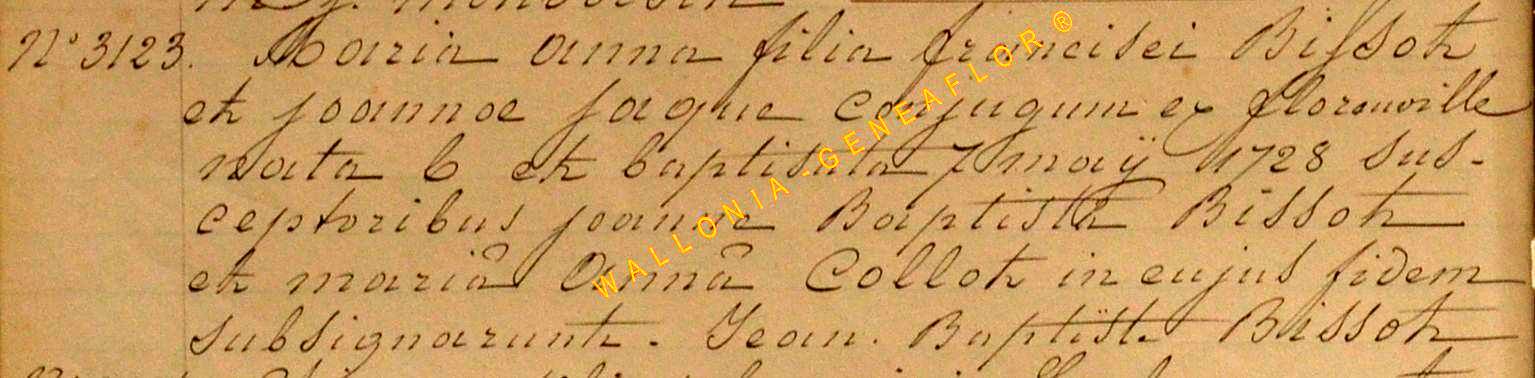 N° 3123. Maria Anna filia francisci Bissot
et joannoe jaque conjugum ex florenville
nata 6 et baptisata 7 maÿ 1728 sus-
ceptoribus joanne Baptista Bissot
et mariâ Annâ Collot in cujus fidem
subsignarunt. Jean. Baptiste Bissot
WALLONIA-GENEAFLOR®